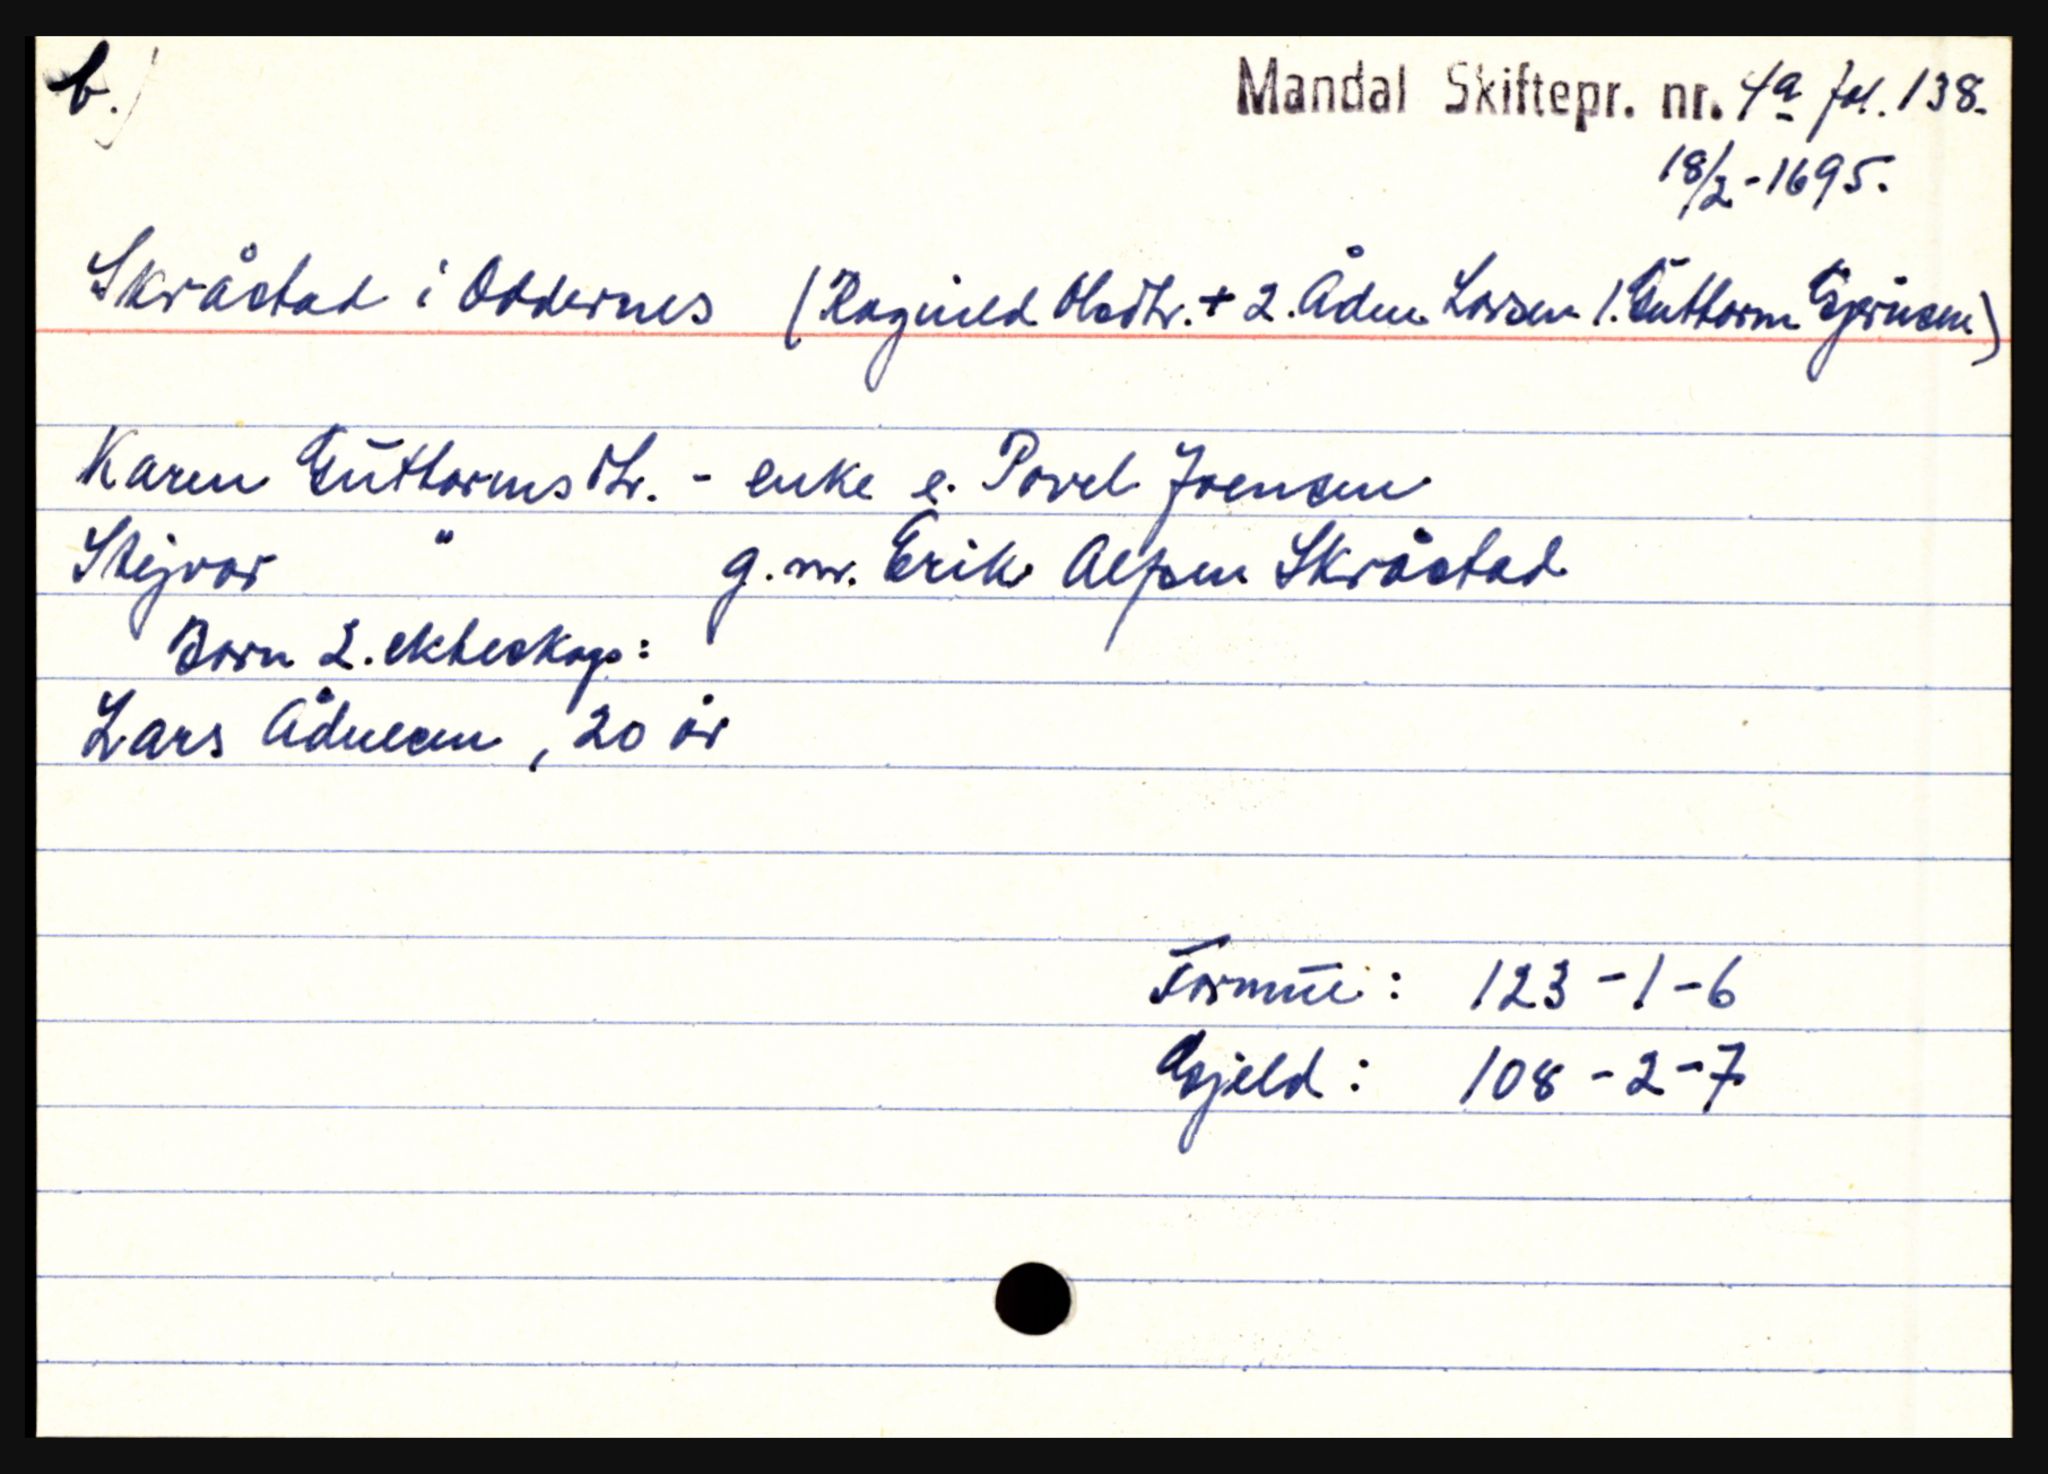 b.)
Mandal Skiftepr. nr. 4a fol. 138.
18/2-1695.
Skråstad i Oddernes (Ragnild Olsdtr. + 2. Ådne Larsen 1. Guttorm)
Karen Guttormsdtr. - enke e. Povel Joensen
" g.m. Erik Alfsen Skråstad
Born 2. ekteskap:
Lars Ådnesen, 20 år
Formue: 123-1-6
Gjeld: 108-2-7